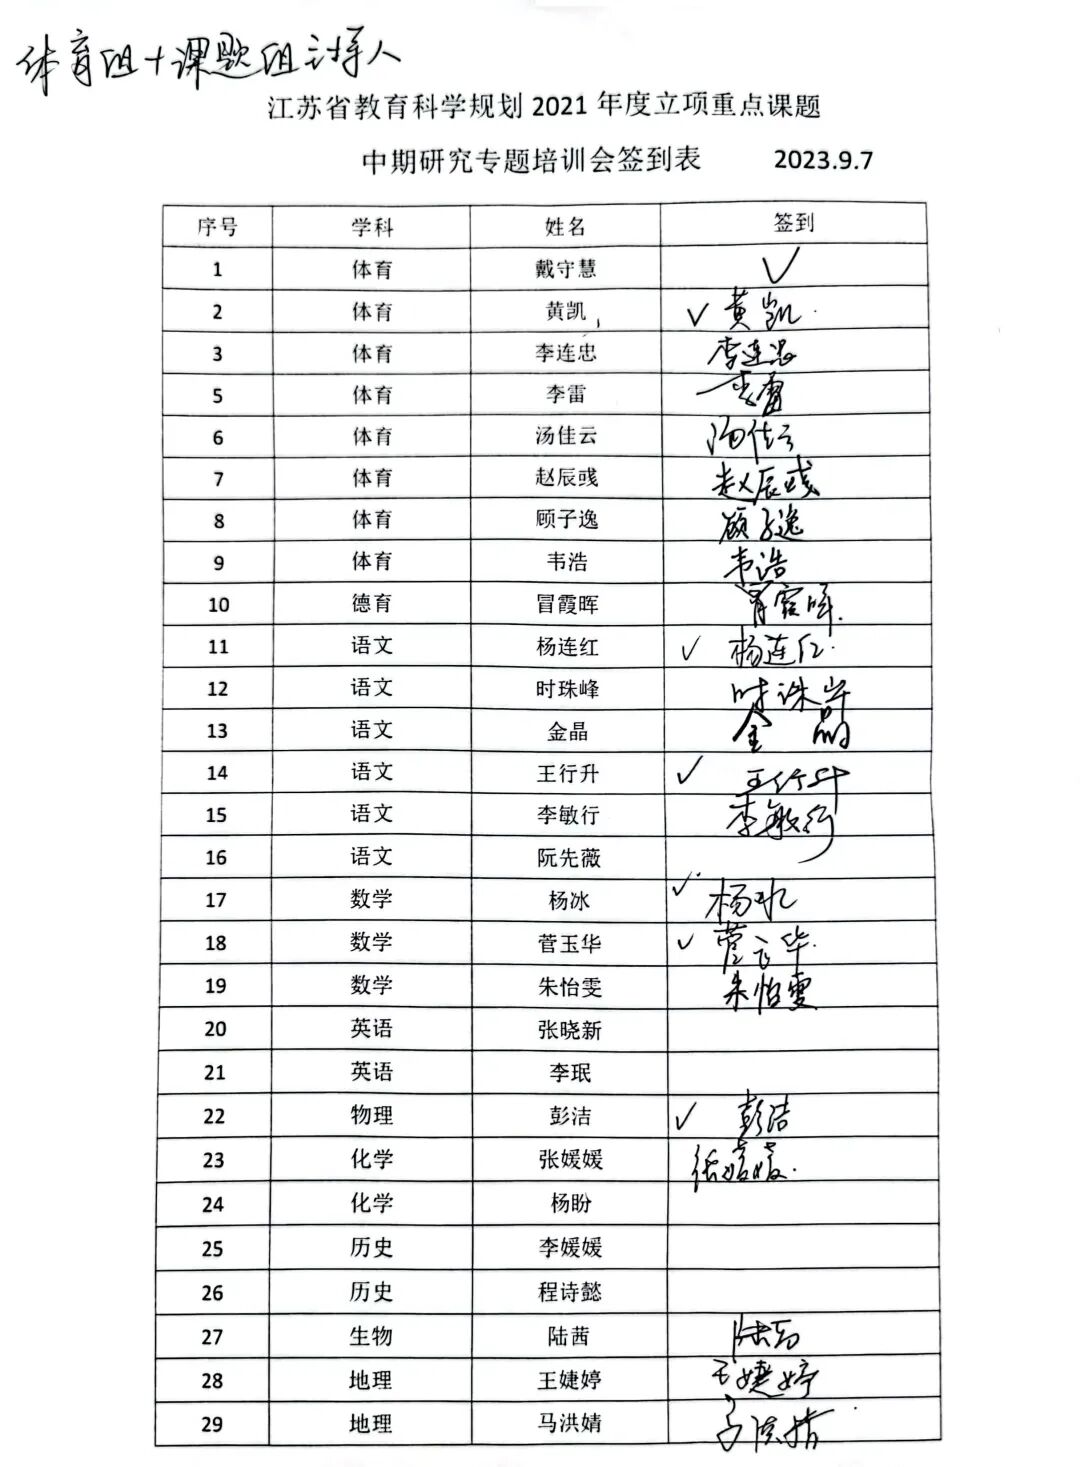 体育组+课题组主持人
江苏省教育科学规划 2021 年度立项重点课题
中期研究专题培训会签到表 2023.9.7
序号 学科 姓名 签到
1 体育 戴守慧 ✓
2 体育 黄凯 ✓ 黄凯
3 体育 李连忠 李连忠
5 体育 李雷 李雷
6 体育 汤佳云 汤佳云
7 体育 赵辰彧 赵辰彧
8 体育 顾子逸 顾子逸
9 体育 韦浩 韦浩
10 德育 冒霞晖 冒霞晖
11 语文 杨连红 ✓ 杨连红
12 语文 时珠峰 时珠峰
13 语文 金晶 金晶
14 语文 王行升 ✓ 王行升
15 语文 李敏行 李敏行
16 语文 阮先薇
17 数学 杨冰 ✓ 杨冰
18 数学 菅玉华 ✓ 菅玉华
19 数学 朱怡雯 朱怡雯
20 英语 张晓新
21 英语 李珉
22 物理 彭洁 ✓ 彭洁
23 化学 张媛媛 张媛媛
24 化学 杨盼
25 历史 李媛媛
26 历史 程诗懿
27 生物 陆茜 陆茜
28 地理 王婕婷 王婕婷
29 地理 马洪婧 马洪婧